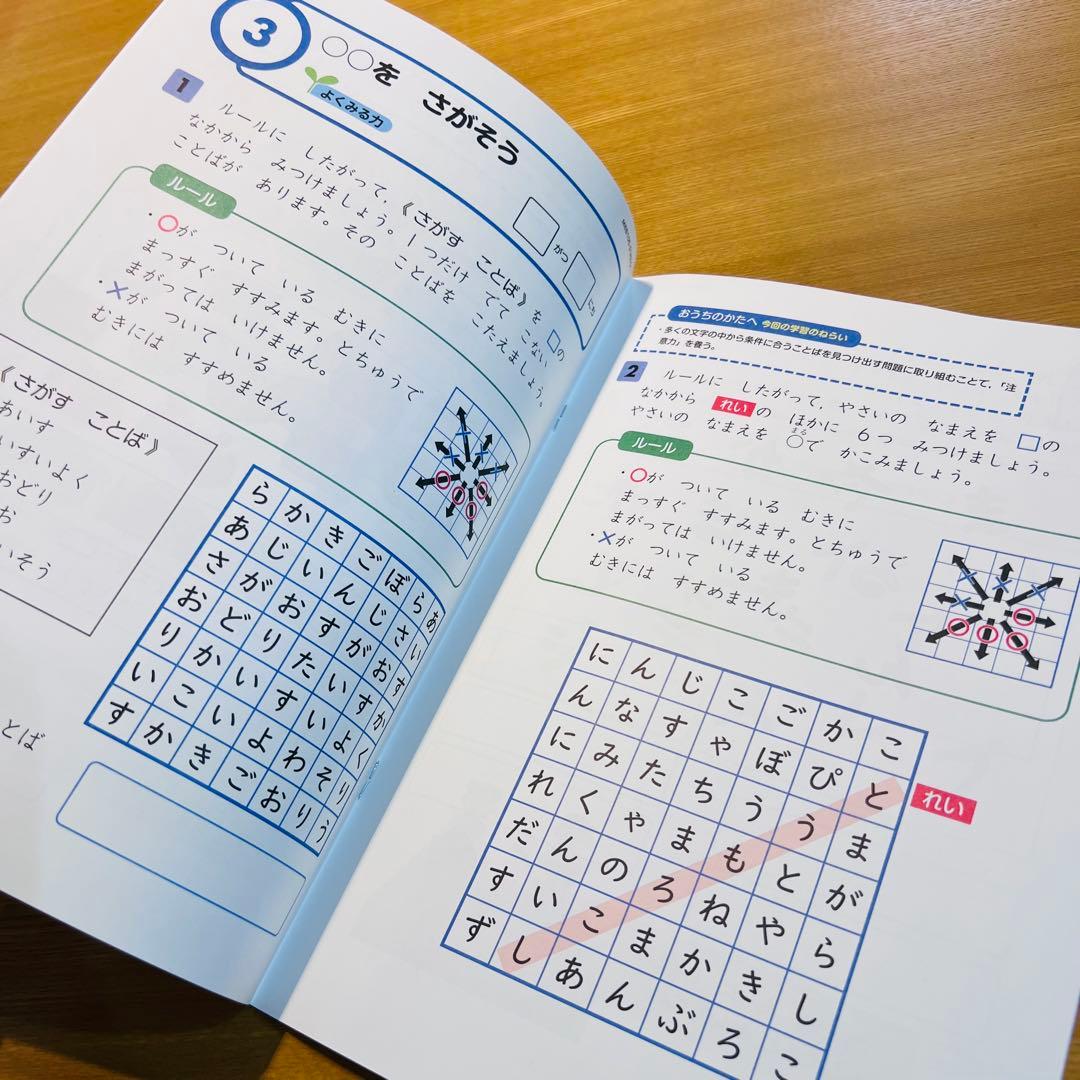 3
○○を さがそう
よくみる力
がつ
にち
1
ルールに したがって, 《さがす ことば》を □の
なかから みつけましょう。1つだけ でて こない
ことばが あります。その ことばを こたえましょう。
ルール
・○が ついて いる むきに
まっすぐ すすみます。とちゅうで
まがっては いけません。
・×が ついて いる
むきには すすめません。
《さがす ことば》
あいす
いすいよく
おどり
お
いそう
とば
ら か き ご ぼ ら あ
あ じ い ん じ さ い
さ が お す が お す
お ど り た い す か
り か い す い よ く
い こ い よ わ そ り
す か き ご お り う
おうちのかたへ 今回の学習のねらい
・多くの文字の中から条件に合うことばを見つけ出す問題に取り組むことで、「注
意力」を養う。
2
ルールに したがって, やさいの なまえを □の
なかから れいの ほかに 6つ みつけましょう。
まる
やさいの なまえを ○で かこみましょう。
ルール
・○が ついて いる むきに
まっすぐ すすみます。とちゅうで
まがっては いけません。
・×が ついて いる
むきには すすめません。
に ん じ こ ご か こ
ん な す ゃ ぼ ぴ と
れい
に み た ち う う ま
れ く ゃ ま も と が
だ ん の ろ ね や ら
す い こ ま か き し
ず し あ ん ぶ ろ こ